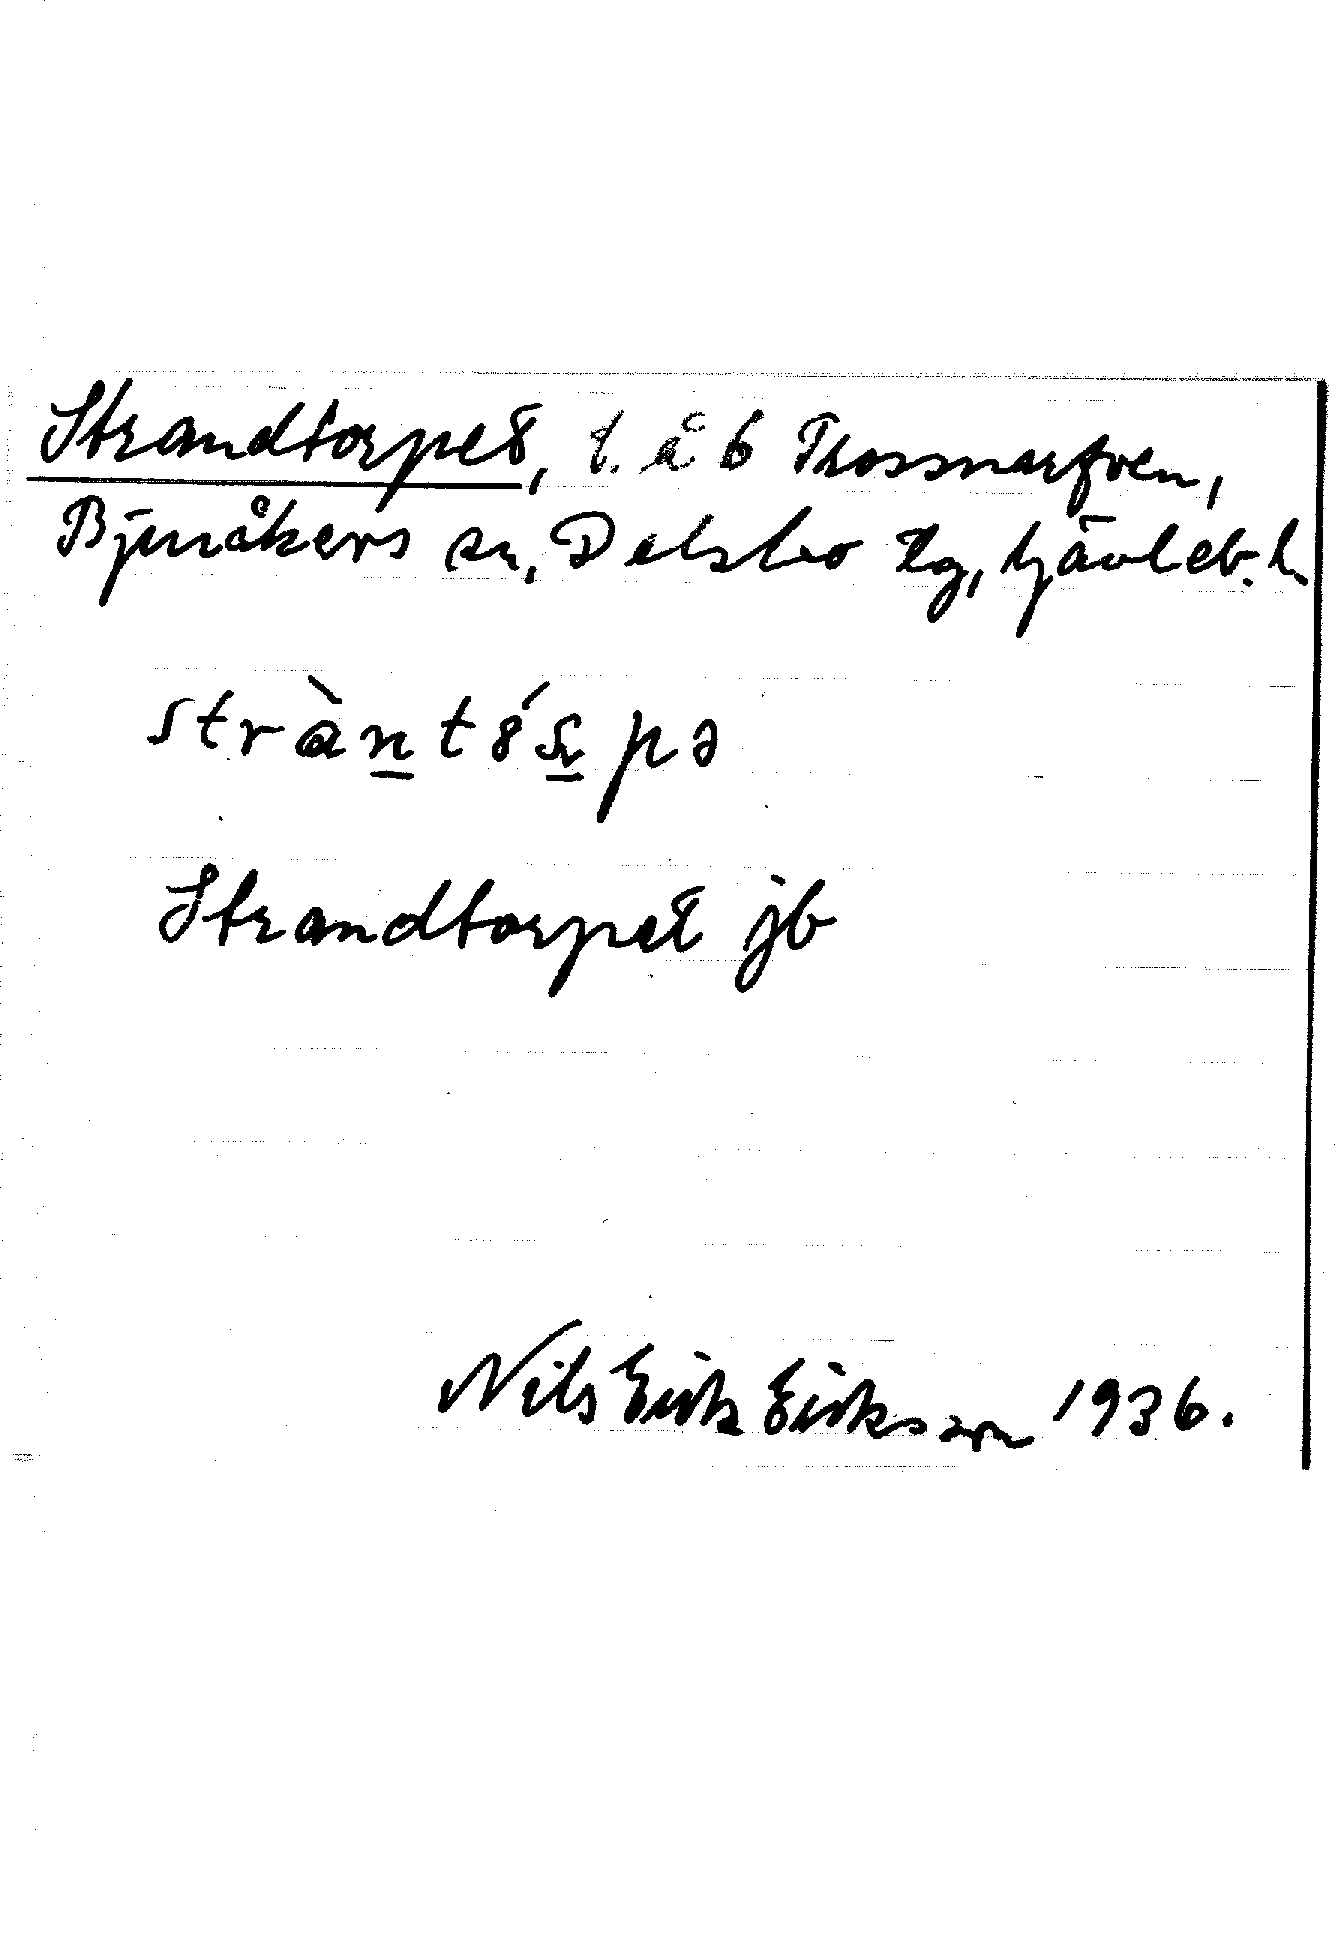 Strandtorpet, t. å 6 Thossmarfven,
Bjuråkers sn, Delsbo tg, Gävleb. l.
Strandtorpet jb
Nils Erik Eriksson 1936.